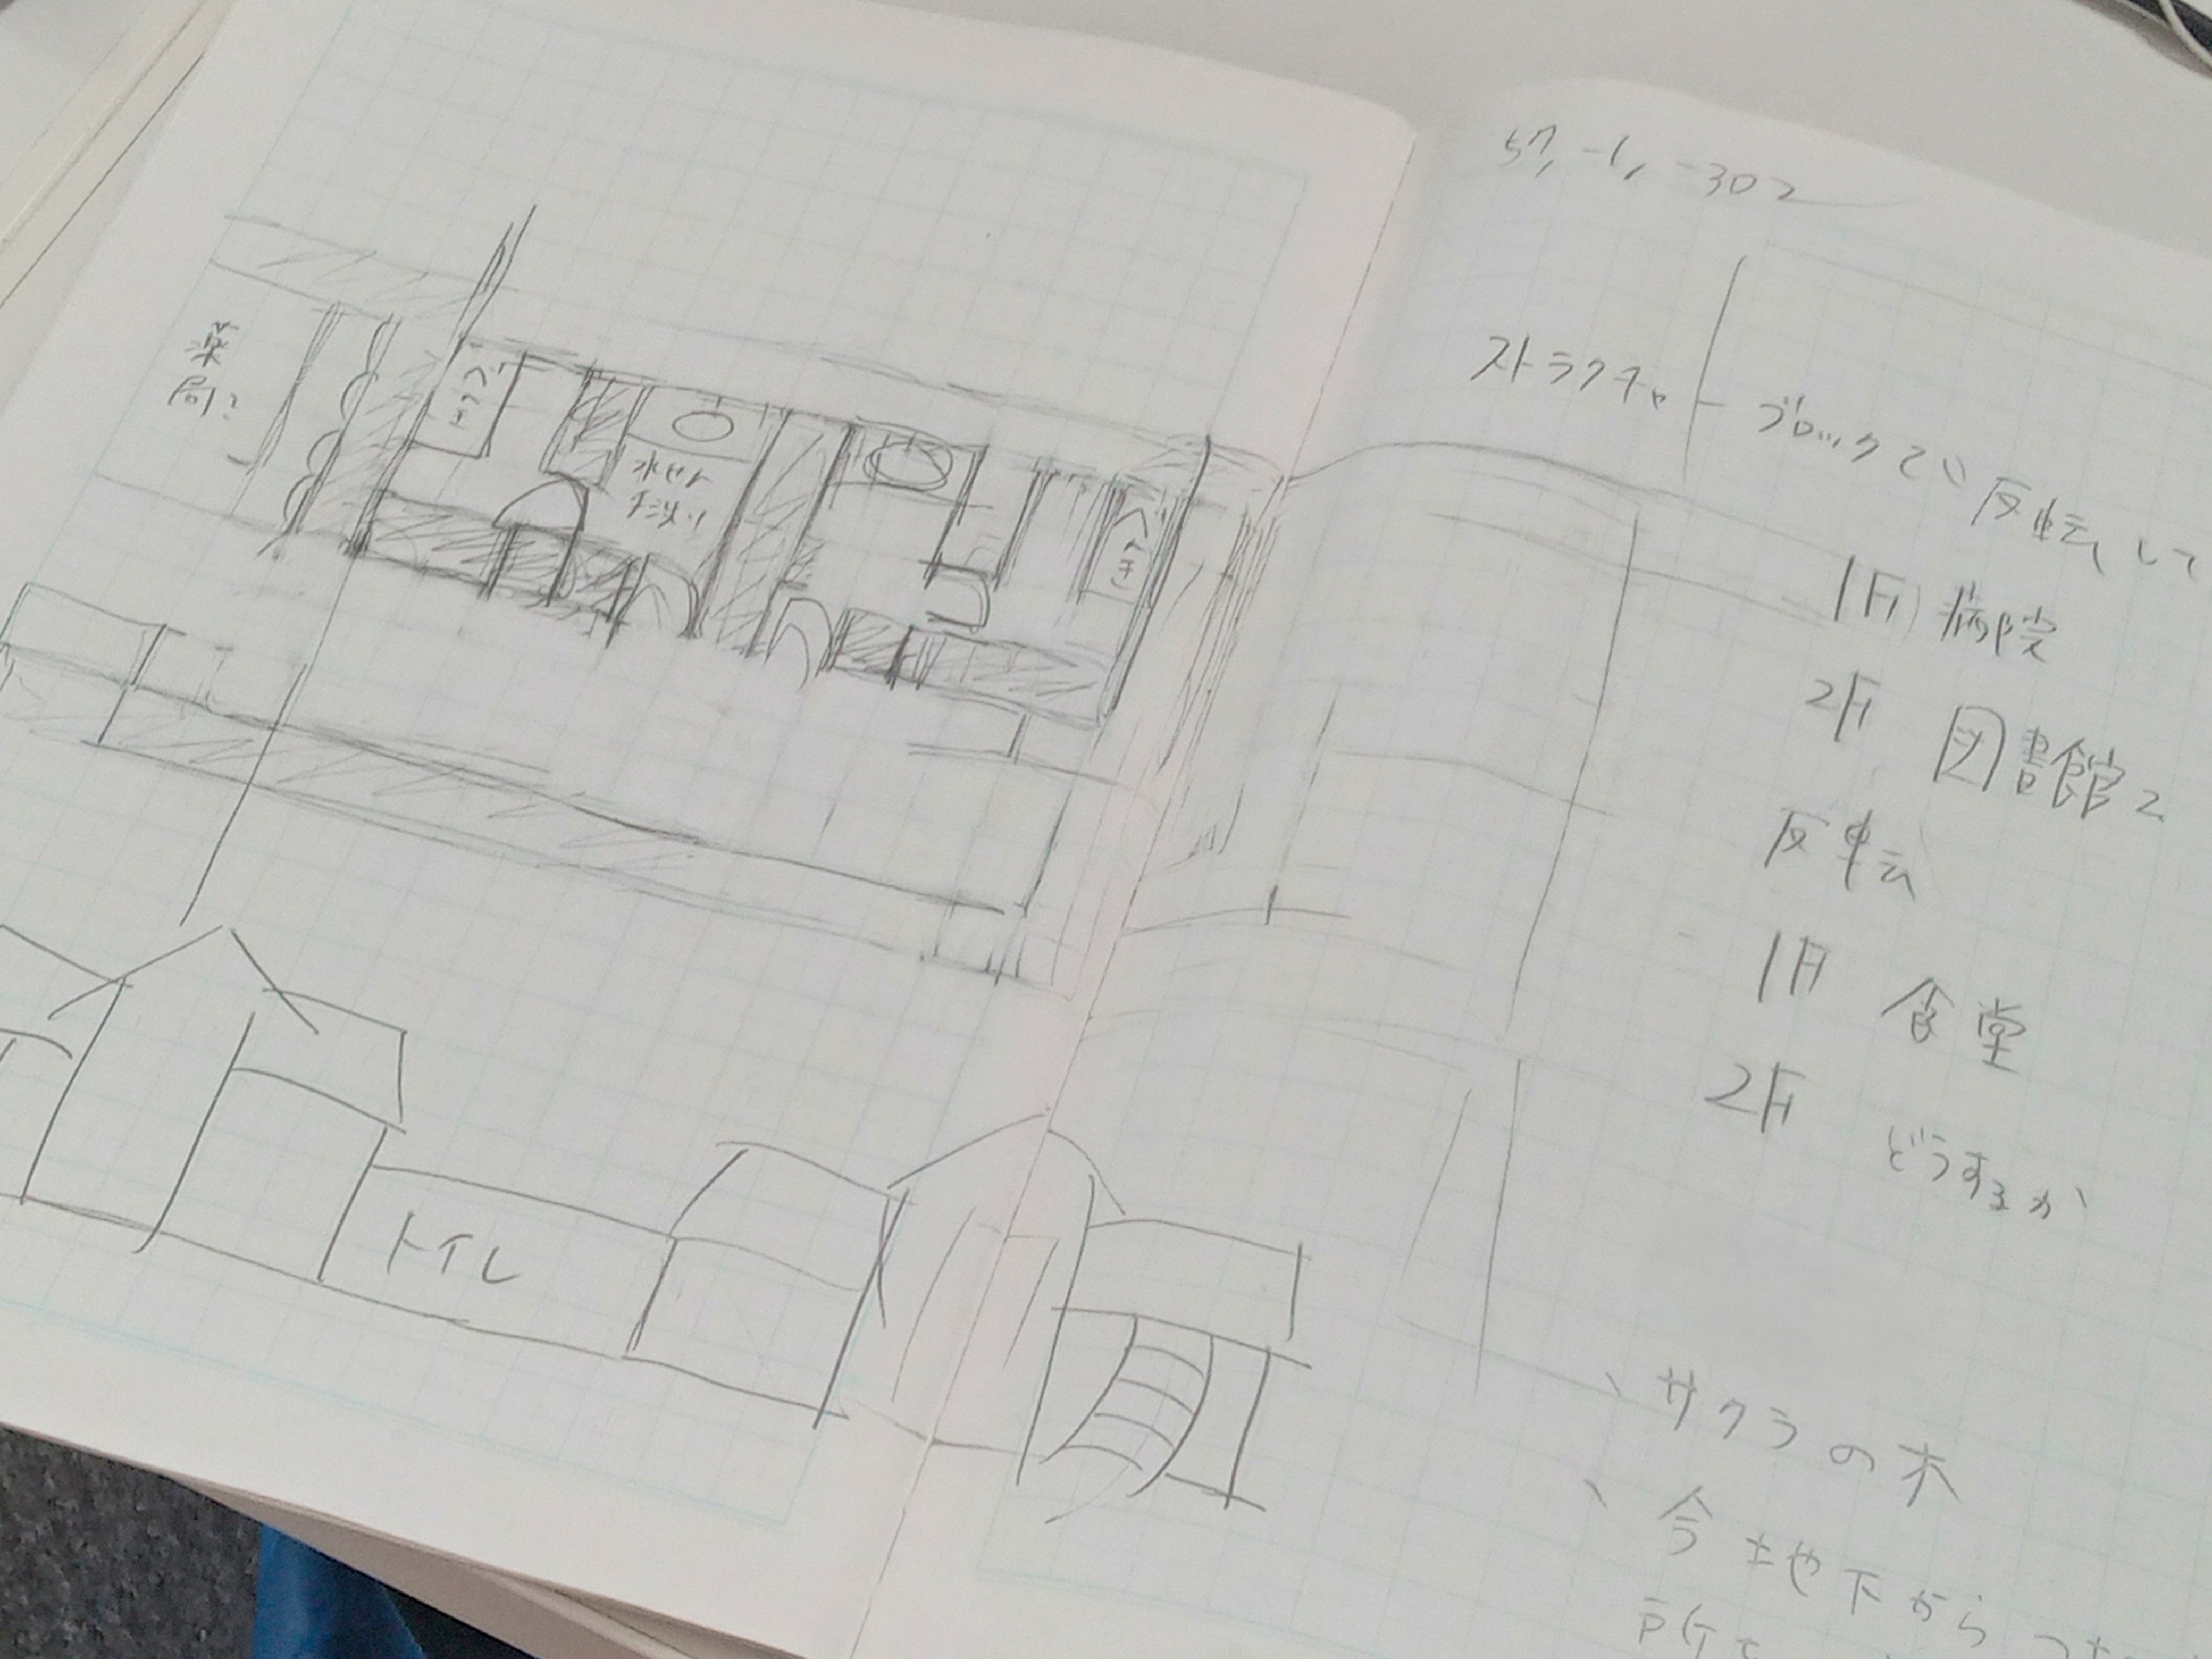 薬局?
べき
水せん
手洗い
べき
トイレ
57, -1, -302
ストラクチャーブロックで反転して
1F 病院
2F 図書館2
反転
1F 食堂
2F どうするか
、サクラの木
、今 地下から
所